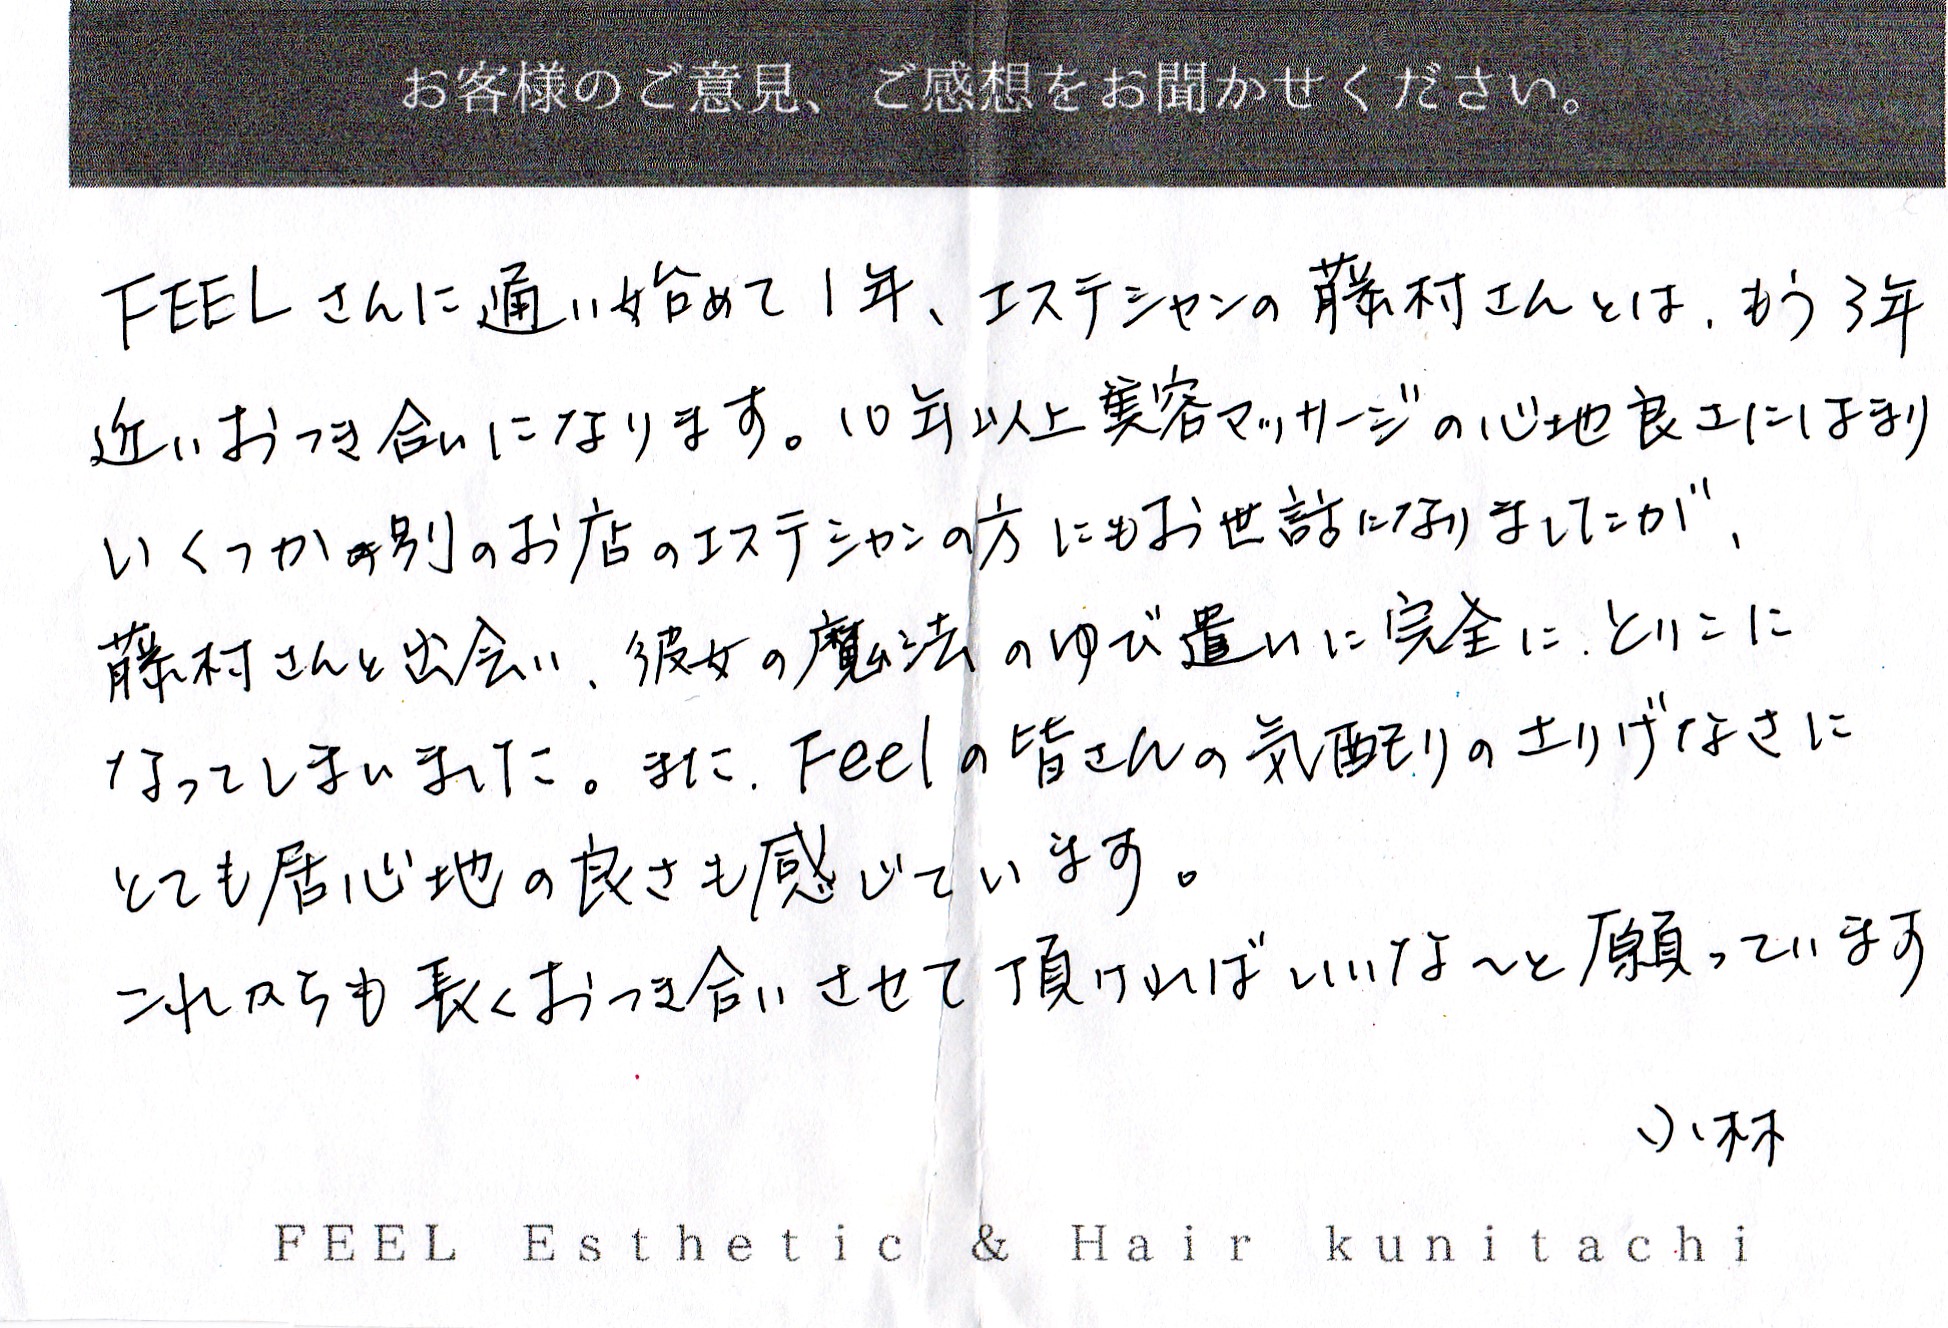 お客様のご意見、ご感想をお聞かせください。
FEELさんに通い始めて1年、エステシャンの藤村さんとは、もう3年
近いおつき合いになります。10年以上美容マッサージの心地良さにはまり
いくつか別のお店のエステシャンの方にもお世話になりましたが、
藤村さんと出会い、彼女の魔法のゆび遣いに完全に、とりこに
なってしまいました。また、Feelの皆さんの気配りのさりげなさに
とても居心地の良さも感じています。
これからも長くおつき合いさせて頂ければいいな〜と願っています
小林
FEEL Esthetic & Hair kunitachi